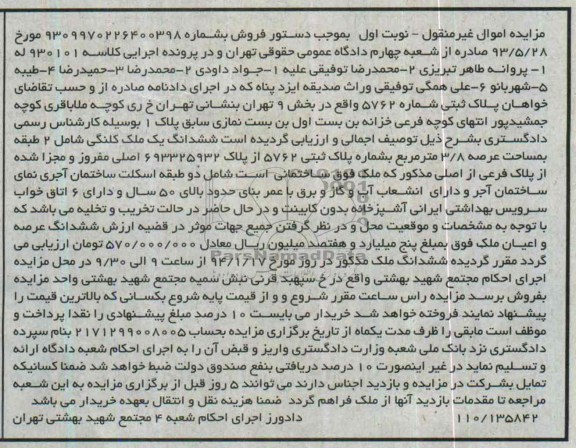 مزایده اموال غیرمنقول - نوبت اول بموجب دستور فروش بشماره ۹۳۰۹۹۷۰۲۲۶۴۰۰۳۹۸ مورخ
۹۳/۵/۲۸ صادره از شعبه چهارم دادگاه عمومی حقوقی تهران و در پرونده اجرایی کلاسه ۹۳۰۱۰۱ له
۱- پروانه طاهر تبریزی ۲-محمدرضا توفیقی علیه ۱-جواد داودی ۲-محمدرضا ۳-حمیدرضا ۴-طیبه
۵-شهربانو ۶-علی همگی توفیقی وراث صدیقه ایزد پناه که در اجرای دادنامه صادره از و حسب تقاضای
خواهان پلاک ثبتی شماره ۵۷۶۲ واقع در بخش ۹ تهران بنشانی تهران خ ری کوچه ملاباقری کوچه
جمشیدپور انتهای کوچه فرعی خزانه بن بست اول بن بست نمازی سابق پلاک ۱ بوسیله کارشناس رسمی
دادگستری بشرح ذیل توصیف اجمالی و ارزیابی گردیده است ششدانگ یک ملک کلنگی شامل ۲ طبقه
بمساحت عرصه ۳/۸ مترمربع بشماره پلاک ثبتی ۵۷۶۲ از پلاک ۶۹۳۳۲۵۹۳۲ اصلی مفروز و مجزا شده
از پلاک فرعی از اصلی مذکور که ملک فوق ساختمانی است شامل دو طبقه اسکلت ساختمان آجری نمای
ساختمان آجر و دارای انشعاب آب و گاز و برق با عمر بنای حدود بالای ۵۰ سال و دارای ۶ اتاق خواب
سرویس بهداشتی ایرانی آشپزخانه بدون کابینت و در حال حاضر در حالت تخریب و تخلیه می باشد که
با توجه به مشخصات و موقعیت محل و در نظر گرفتن جمیع جهات موثر در قضیه ارزش ششدانگ عرصه
و اعیان ملک فوق بمبلغ پنج میلیارد و هفتصد میلیون ریال معادل ۵۷۰/۰۰۰/۰۰۰ تومان ارزیابی می
گردد مقرر گردیده ششدانگ ملک مذکور در روز مورخ ۹۴/۱/۱۷ از ساعت ۹ الی ۹/۳۰ در محل مزایده
اجرای احکام مجتمع شهید بهشتی واقع در خ سپهبد قرنی نبش سمیه مجتمع شهید بهشتی واحد مزایده
بفروش برسد مزایده راس ساعت مقرر شروع و و از قیمت پایه شروع بکسانی که بالاترین قیمت را
پیشنهاد نمایند فروخته خواهد شد خریدار می بایست ۱۰ درصد مبلغ پیشنهادی را نقدا پرداخت و
موظف است مابقی را ظرف مدت یکماه از تاریخ برگزاری مزایده بحساب ۲۱۷۱۲۹۹۰۰۸۰۰۵ بنام سپرده
دادگستری نزد بانک ملی شعبه وزارت دادگستری واریز و قبض آن را به اجرای احکام شعبه دادگاه ارائه
و تسلیم نماید در غیر اینصورت ۱۰ درصد دریافتی بنفع صندوق دولت ضبط خواهد شد ضمنا کسانیکه
تمایل بشرکت در مزایده و بازدید اجناس دارند می توانند ۵ روز قبل از برگزاری مزایده به این شعبه
مراجعه تا مقدمات بازدید آنها از ملک فراهم گردد ضمنا هزینه نقل و انتقال بعهده خریدار می باشد
۱۱۰/۱۳۵۸۴۲ دادورز اجرای احکام شعبه ۴ مجتمع شهید بهشتی تهران